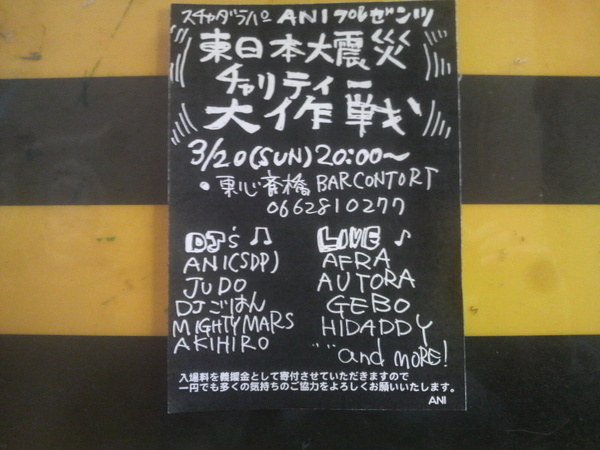 スチャダラパー ANI プレゼンツ
東日本大震災
チャリティー
大作戦
3/20(SUN) 20:00〜
・東心斎橋 BAR CONTORT
0662810277
DJ's ♫
ANI(SDP)
JUDO
DJごはん
MIGHTYMARS
AKIHIRO
LIVE ♪
AFRA
AUTORA
GEBO
HIDADDY
and MORE!
入場料を義援金として寄付させていただきますので
一円でも多くの気持ちのご協力をよろしくお願いいたします。
ANI